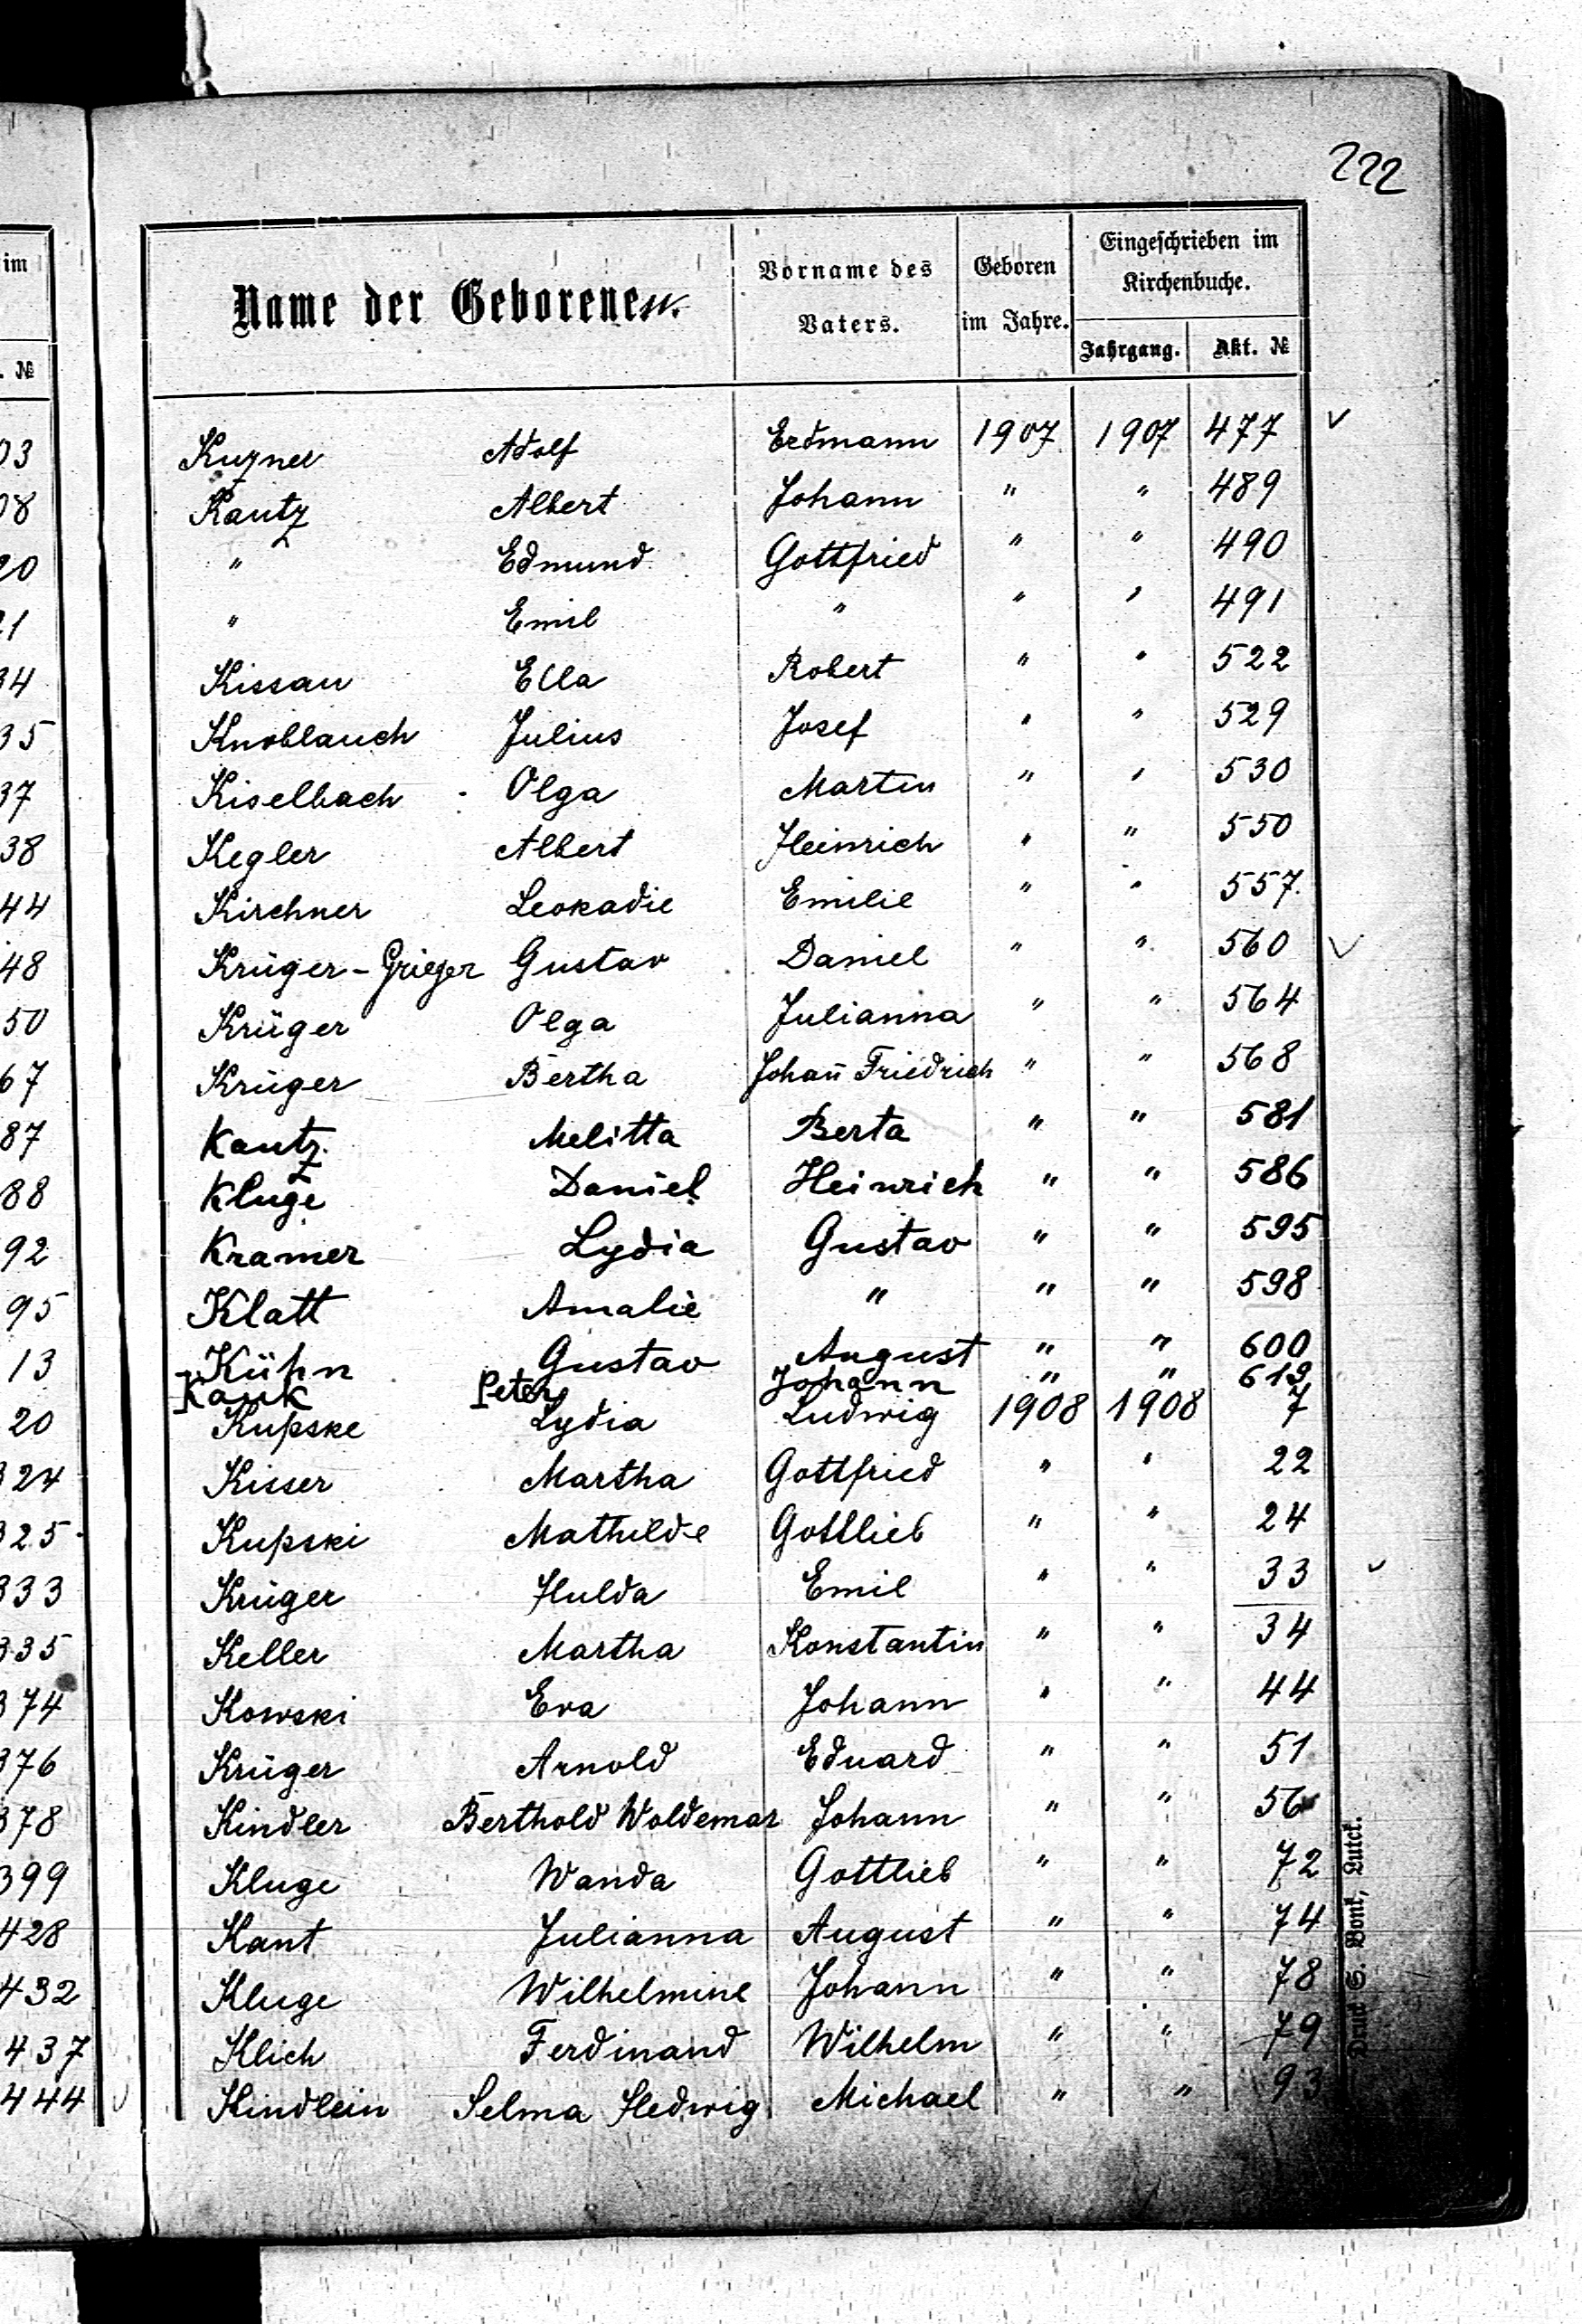 222
im
Name der Geborenen.
Vorname des Vaters.
Geboren im Jahre.
Eingeschrieben im Kirchenbuche.
Jahrgang.
Akt. №
. №
03 Adolf Erdmann 1907 1907 477 ✓
08 Kautz Albert Johann " " 489
20 " Edmund Gottfried " " 490
21 " Emil " " " 491
34 Kissau Ella Robert " " 522
35 Knoblauch Julius Josef " " 529
37 Kiselbach Olga Martin " " 530
38 Kegler Albert Heinrich " " 550
44 Kirchner Leokadie Emilie " " 557.
48 Krüger-Grieger Gustav Daniel " " 560 ✓
50 Krüger Olga Julianna " " 564
67 Krüger Bertha Johan̄ Friedrich " " 568
87 Kautz Melitta Berta " " 581
88 Kluge Daniel Heinrich " " 586
92 Kramer Lydia Gustav " " 595
95 Klatt Amalie " " " 598
13 Kühn Gustav August " " 600
Kauk Peter Johann " " 613
20 Kupske Lydia Ludwig 1908 1908 7
324 Kisser Martha Gottfried " " 22
325 Kupski Mathilde Gottlieb " " 24
333 Krüger Hulda Emil " " 33 ✓
335 Keller Martha Konstantin " " 34
374 Kowski Eva Johann " " 44
376 Krüger Arnold Eduard " " 51
378 Kindler Berthold Woldemar Johann " " 56
399 Kluge Wanda Gottlieb " " 72
428 Kant Julianna August " " 74
432 Kluge Wilhelmine Johann " " 78
437 Klich Ferdinand Wilhelm " " 79
444 ✓ Kindlein Selma Hedwig Michael " " 93
Druck S. Bonk, Luck.